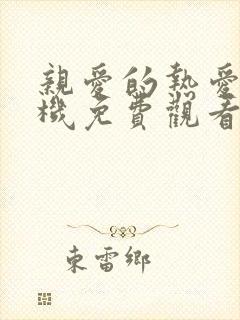 親愛的熱愛
機免費觀看
東雷鄉